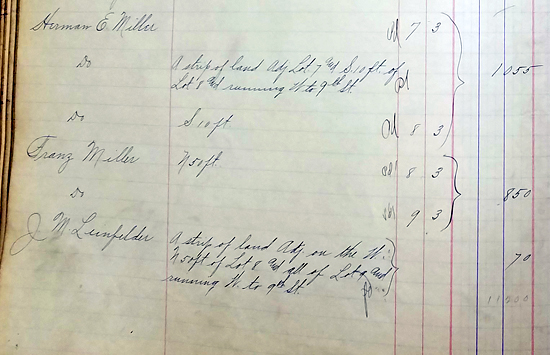 Herman E. Miller 7 3
Do A strip of land Adj Lot 7 and S 10 ft. of 1055
Lot 8 and running W to 9th St.
Do S 10 ft 8 3
Franz Miller N 50 ft 8 3
Do 9 3 850
J M Leinfelder A strip of land Adj on the W. 70
N 50 ft of Lot 8 and all of Lot 9 and
running W. to 9th St.